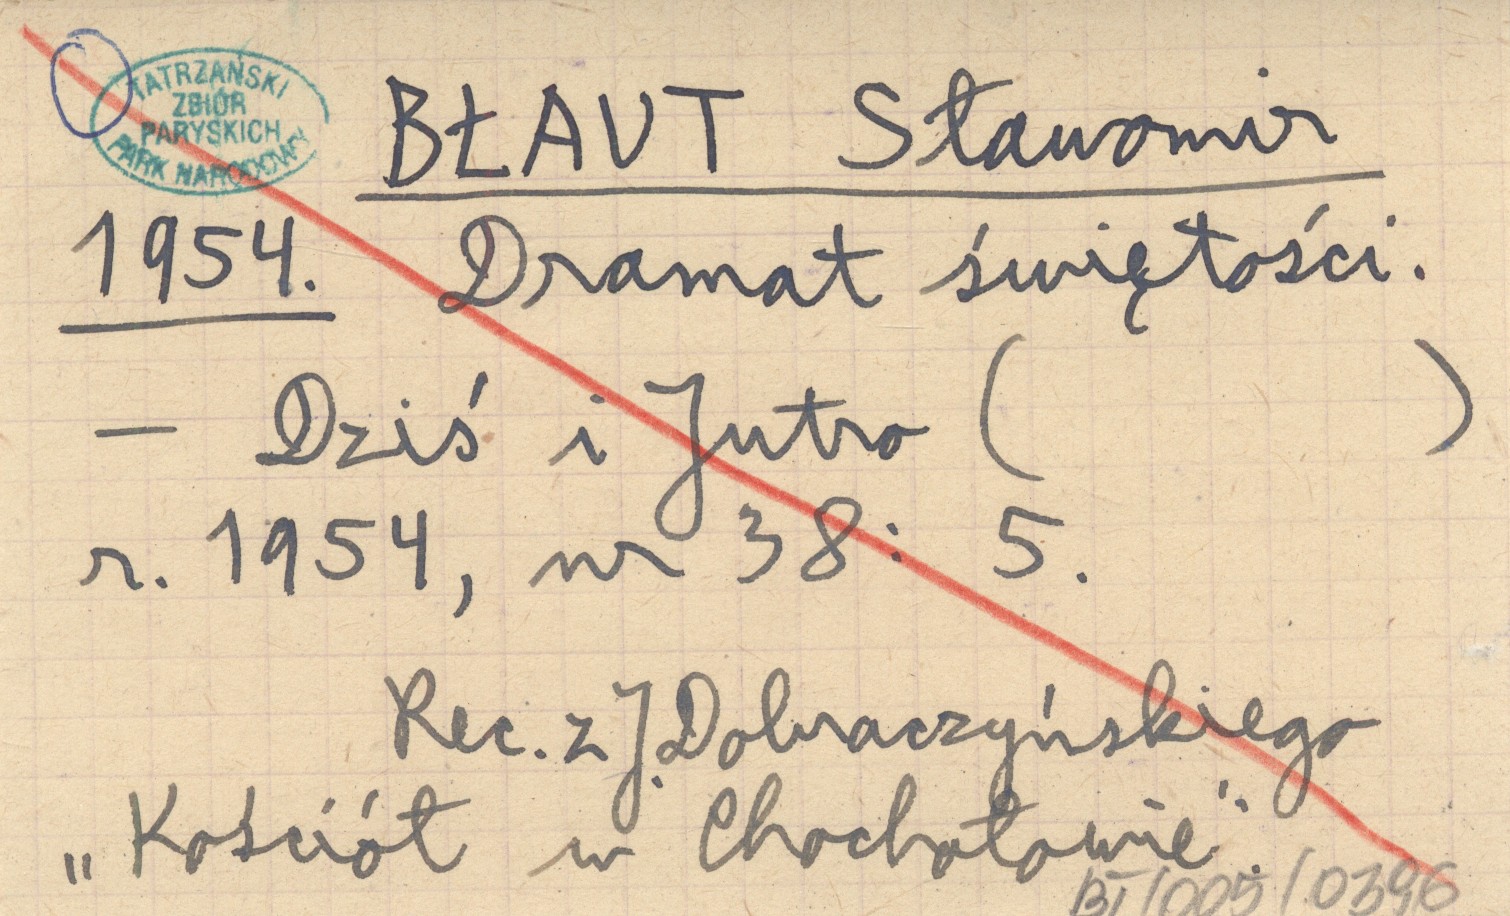 TATRZAŃSKI
ZBIÓR
PARYSKICH
PARK NARODOWY
BŁAUT Sławomir
1954. Dramat świętości.
— Dziś i Jutro ( )
r. 1954, nr 38: 5.
Rec. z J. Dobraczyńskiego
„Kościół w Chochołowie".
BI/005/0396